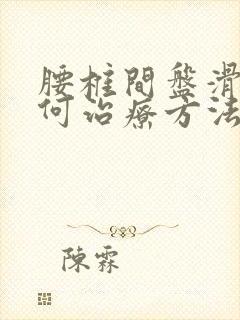 腰椎間盤滑
何治療方法
陳霖